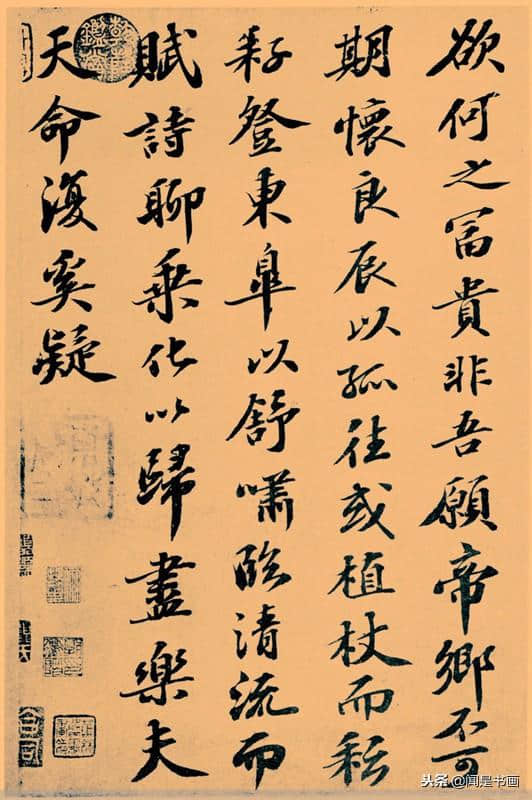 欲何之冨貴非吾願帝鄉不可
期懷良辰以孤往或植杖而耘
耔登東皋以舒嘯臨清流而
賦詩聊乘化以歸盡樂夫
天命復奚疑
头条 @闻是书画